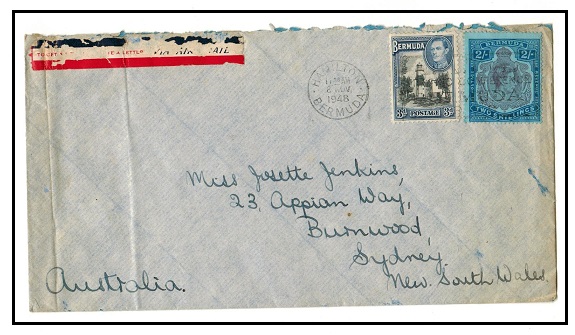 BERMUDA
3d POSTAGE 3d
BERMUDA
2/- 2/-
TWO SHILLINGS
HAMILTON
6 NOV
1948
BERMUDA
Miss Josette Jenkins,
23, Appian Way,
Burnwood,
Sydney,
New South Wales.
Australia.